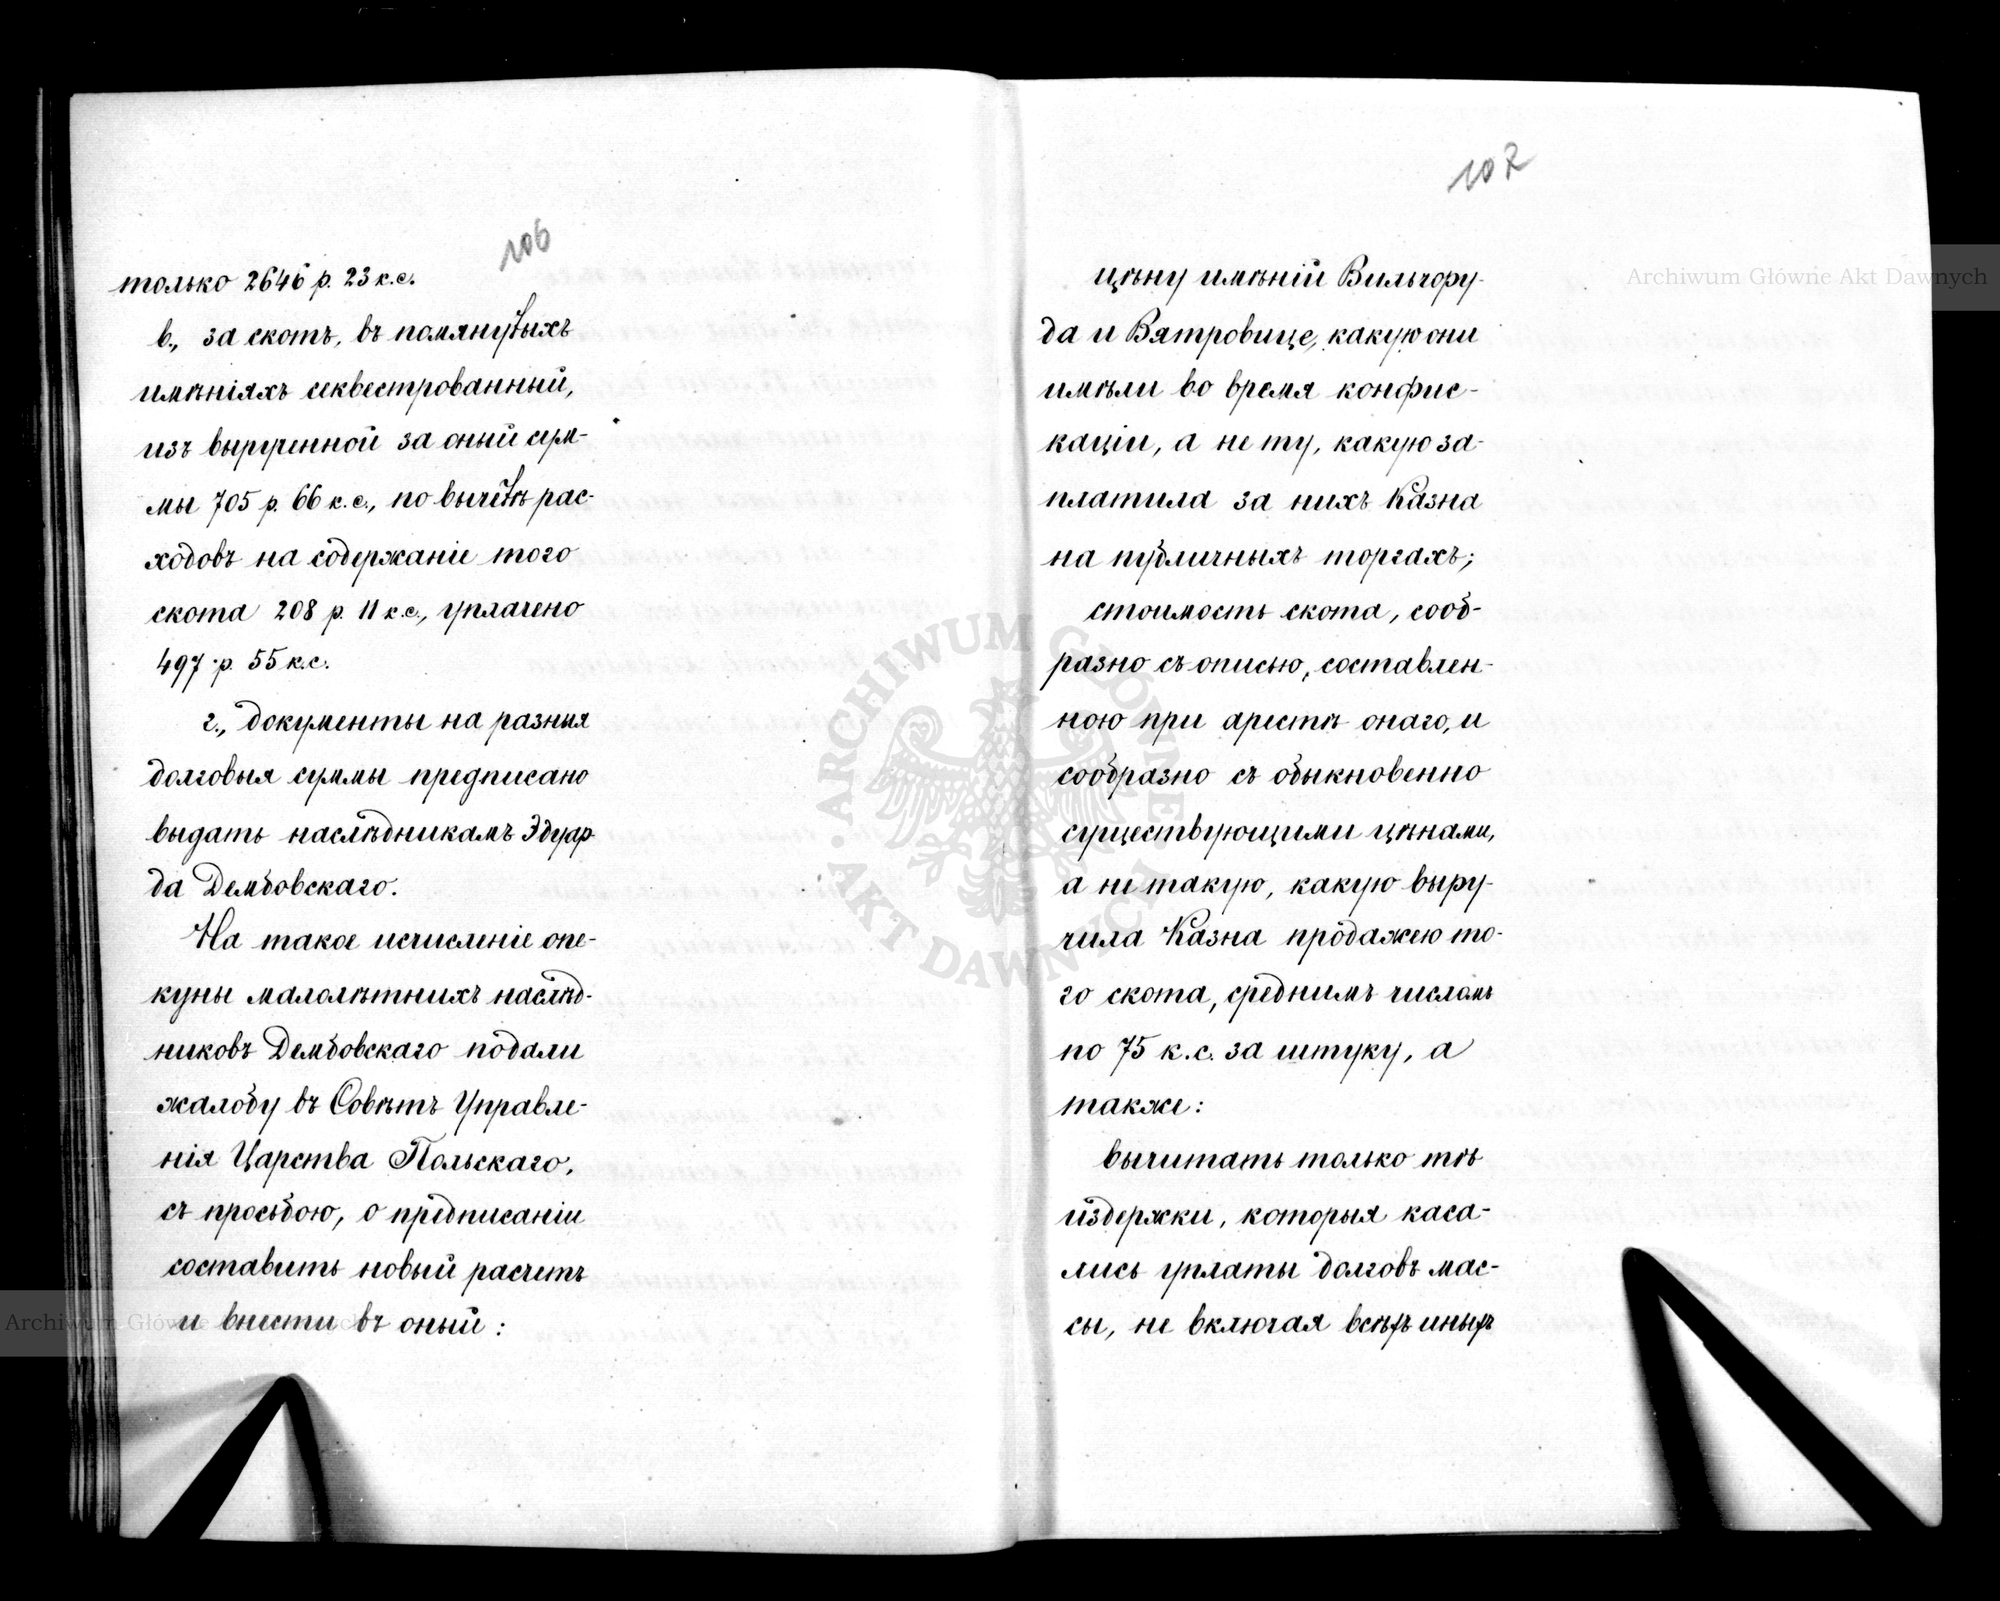 106
только 2646 р. 23 к.с.
в., за скотъ, въ помянутыхъ
имѣніяхъ секвестрованный,
изъ вырученной за оный сум-
мы 705 р. 66 к.с., по вычетѣ рас-
ходовъ на содержаніе того
скота 208 р. 11 к.с., уплачено
497 р. 55 к.с.
г., документы на разныя
долговыя суммы предписано
выдать наслѣдникамъ Эдуар-
да Дембовскаго.
На такое исчисленіе опе-
куны малолѣтнихъ наслѣд-
никовъ Дембовскаго подали
жалобу въ Совѣтъ Управле-
нія Царства Польскаго,
съ просьбою, о предписаніи
составить новый расчетъ
и внести въ оный:
107
цѣну имѣній Вильгору-
да и Вятровице, какую они
имѣли во время конфис-
каціи, а не ту, какую за-
платила за нихъ Казна
на публичныхъ торгахъ;
стоимость скота, сооб-
разно съ описью, составлен-
ною при арестѣ онаго, и
сообразно съ обыкновенно
существующими цѣнами,
а не такую, какую выру-
чила Казна продажею то-
го скота, среднимъ числомъ
по 75 к.с. за штуку, а
также:
вычитать только тѣ
издержки, которыя каса-
лись уплаты долговъ мас-
сы, не включая всѣхъ иныхъ
Archiwum Główne Akt Dawnych
ARCHIWUM GŁÓWNE AKT DAWNYCH
Archiwum Główne Akt Dawnych